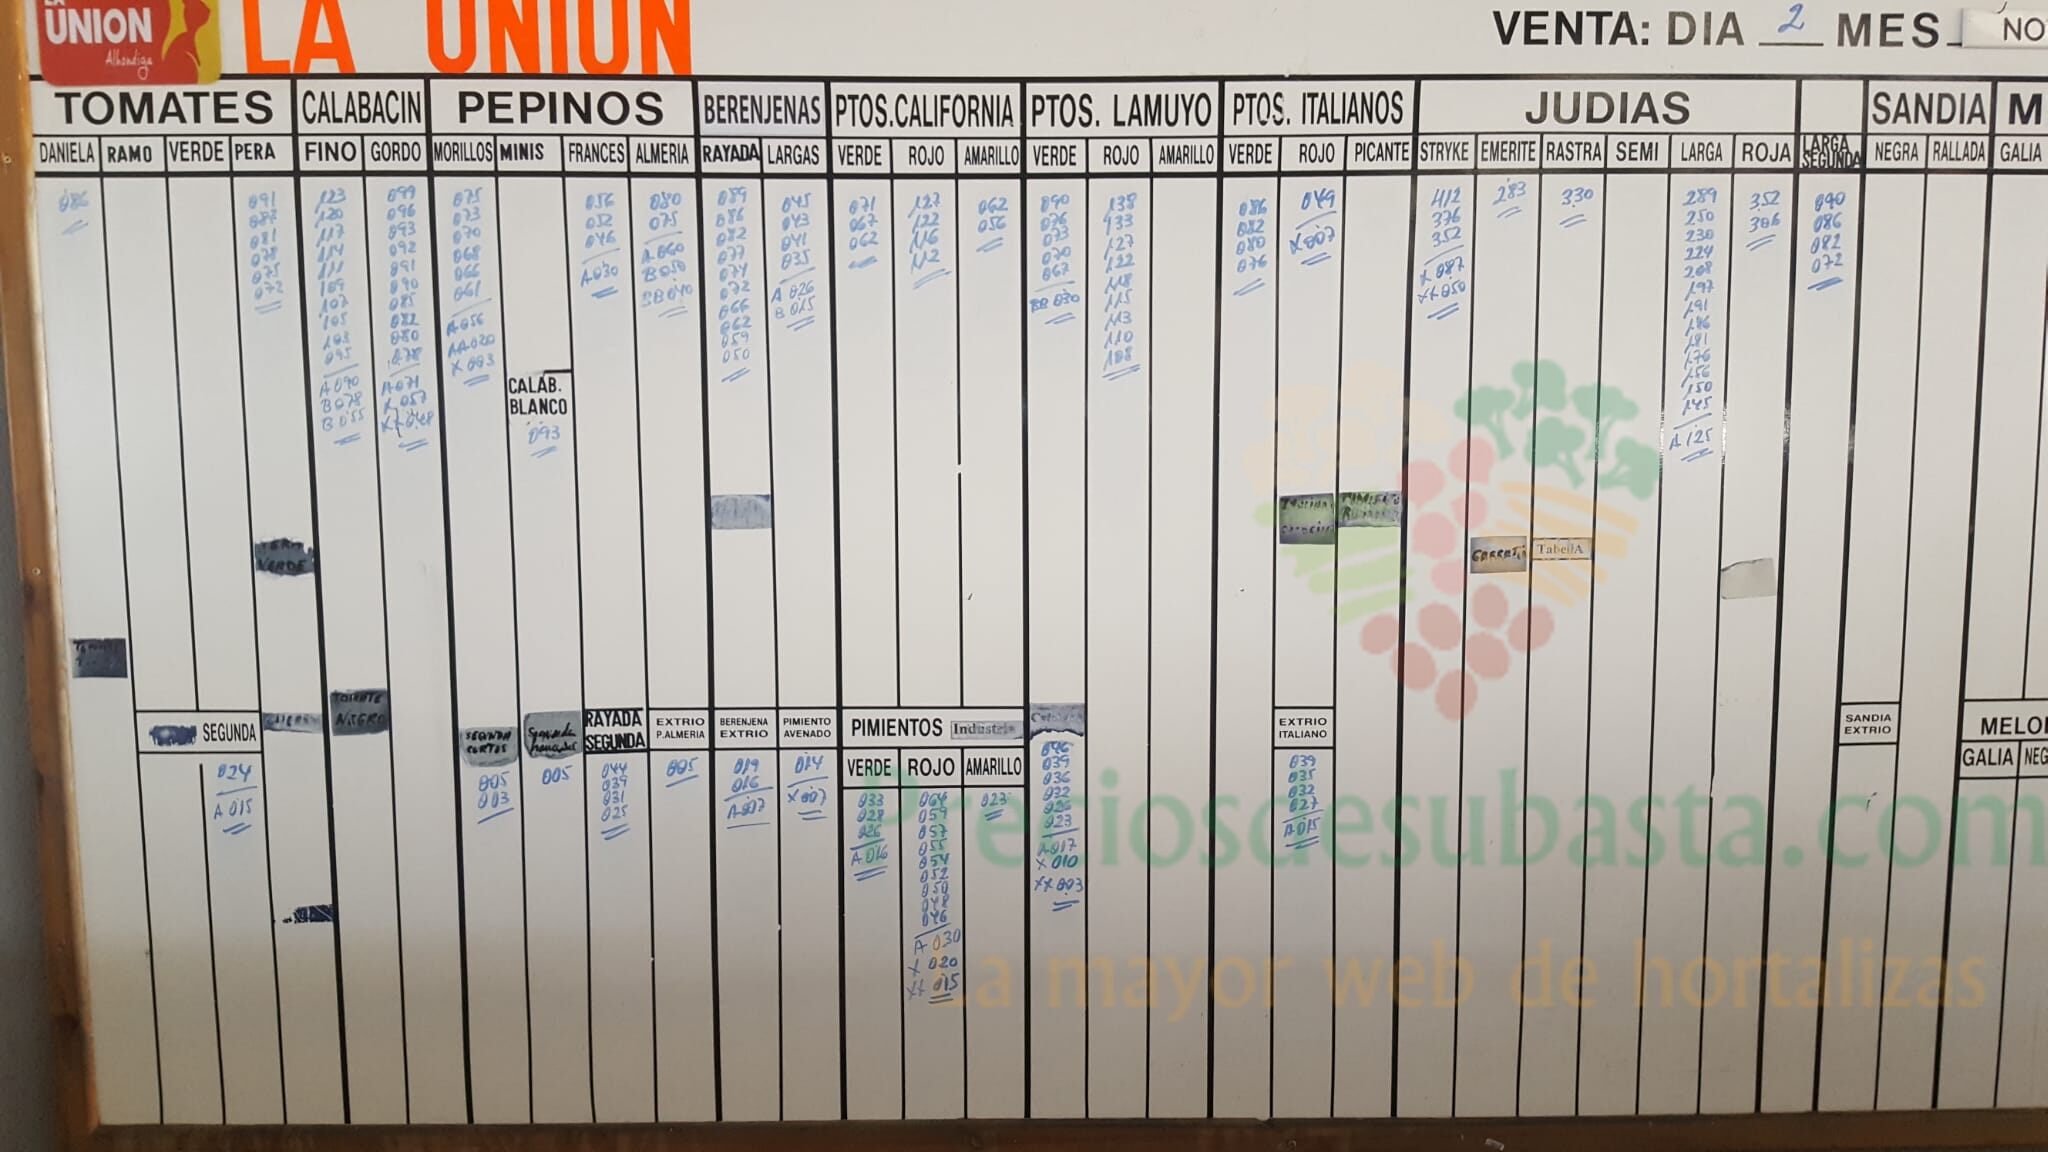 LA
UNION
Alhóndiga
LA UNION
VENTA: DIA 2 MES NO
TOMATES CALABACIN PEPINOS BERENJENAS PTOS.CALIFORNIA PTOS. LAMUYO PTOS. ITALIANOS JUDIAS SANDIA M
DANIELA RAMO VERDE PERA FINO GORDO MORILLOS MINIS FRANCES ALMERIA RAYADA LARGAS VERDE ROJO AMARILLO VERDE ROJO AMARILLO VERDE ROJO PICANTE STRYKE EMERITE RASTRA SEMI LARGA ROJA LARGA SEGUNDA NEGRA RALLADA GALIA
086
091
087
081
078
075
072
123
120
117
114
111
109
107
105
103
095
A 090
B 078
B 055
099
096
093
092
091
090
085
082
080
078
A 071
X 057
XX 048
075
073
070
068
066
061
A 056
AA 020
X 003
CALAB.
BLANCO
093
056
052
046
A 030
080
075
A 060
B 050
BB 040
089
086
082
077
074
072
066
062
059
050
045
043
041
035
A 026
B 015
071
067
062
127
122
116
112
062
056
090
076
073
070
067
BB 030
138
133
127
122
118
115
113
110
108
086
082
080
076
049
X 007
412
376
352
X 087
XX 050
283
330
289
250
230
224
208
197
191
186
181
176
156
150
145
A 125
352
306
090
086
082
072
VERDE
GARRAFA
TabellA
SEGUNDA
024
A 015
TOMATE
NEGRO
SEGUNDA
CORTOS
005
003
Segunda
005
RAYADA
SEGUNDA
044
039
031
025
EXTRIO
P.ALMERIA
005
BERENJENA
EXTRIO
019
016
A 007
PIMIENTO
AVENADO
014
X 007
PIMIENTOS Industria
VERDE ROJO AMARILLO
033
028
026
A 016
064
059
057
055
054
052
050
048
046
A 030
X 020
XX 015
023
046
039
036
032
026
023
A 017
X 010
XX 003
EXTRIO
ITALIANO
039
035
032
027
A 015
SANDIA
EXTRIO
MELO
GALIA NEG
Preciosdesubasta.com
La mayor web de hortalizas